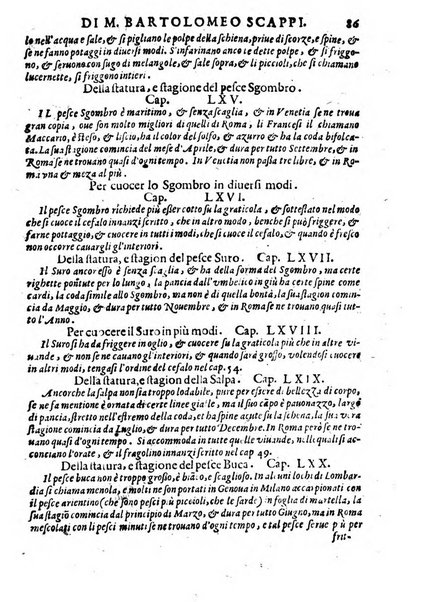 DI M. BARTOLOMEO SCAPPI. 86
lo nell'acqua e sale, & si pigliano le polpe della schina, priue di scorze, e spine, &
se ne fanno potaggi in diuersi modi. S'infarinano anco le dette polpe, & si friggo-
no, & seruono con sugo di melangole, & sale sopra, & li piccioli, che si chiamano
lucernette, si friggono intieri.
Della statura, e stagione del pesce Sgombro.
Cap. LXV.
IL pesce Sgombro è maritimo, & senza scaglia, & in Venetia se ne troua
gran copia, que son molto migliori di quelli di Roma, li Francesi il chiamano
Maccario, è steso, & ha il color del solfo, & azurro & ha la coda bifolca-
ta. La stagione comincia del mese d'Aprile, & dura per tutto Settembre, & in
Roma se ne trouano quasi d'ogni tempo. In Venetia non pasta tre libre, & in Roma
una & meza al più.
Per cuocer lo Sgombro in diuersi modi.
Cap. LXVI.
Il pesce Sgombro richiede più esser cotto su la graticola, & sottestato nel modo
che si cuoce il cefalo innanzi scritto, che in altro modo, benche si può friggere, &
farne potaggio, & cuocere in tutti i modi, che si cuoce il cefalo, & quando è fresco
non occorre cauargli gl'interiori.
Della statura, e stagion del pesce Suro. Cap. LXVII.
IL Suro ancor esso è senza scaglia, & ha della forma del Sgombro, ma certe
righette pontute per lo lungo, la pancia dall'umbelico in giù certe spine come
cardi, la coda simile allo Sgombro, & non è di quella bontà, la sua stagion comin-
cia da Maggio, & dura per tutto Nouembre, & in Roma se ne trouano quasi tut-
to l'Anno.
Per cuocere il Suro in più modi. Cap. LXVIII.
IL Suro si ha da friggere in oglio, & cuocere su la graticola più che in altre vi-
uande, & non se ne cauano gl'interiori, & quando sarà grosso, volendosi cuocere
in altri modi, tengasi l'ordine del cefalo nel cap. 54.
Della statura, e stagion della Salpa. Cap. LXIX.
Ancorche la salpa non sia troppo lodabile, pure per esser di bellezza di corpo,
se ne fa mentione è ornata di certe linee gialle, ma il suo capo è pauonazzo, largo
di pancia, stretto nell'estremo della coda, & ha spine acute su la schena, la sua vera
stagione comincia da Luglio, & dura per tutto Decembre. In Roma però se ne troua
quasi d'ogni tempo. Si accommoda in tutte quelle viuande, nelle quali si ac-
conciano l'orate, & il fragolino innanzi scritti nel cap 49.
Della statura, e stagione del pesce Buca. Cap. LXX.
Il pesce buca non è troppo grosso, è biāco, e scaglioso. In alcuni luochi di Lombar-
dia si chiama menola, e molti ne son portati in Genoua in Milano accarpionati con
il pesce arientino (che sono pesci più piccioli, che le sarde) in foglia di martella, la
sua stagione comincia dal principio di Marzo, & dura per tutto Giugno, ma in Roma
mescolati con li pesci minuti se ne trouano d'ogni tempo, e tal pesce serue più per
frit-